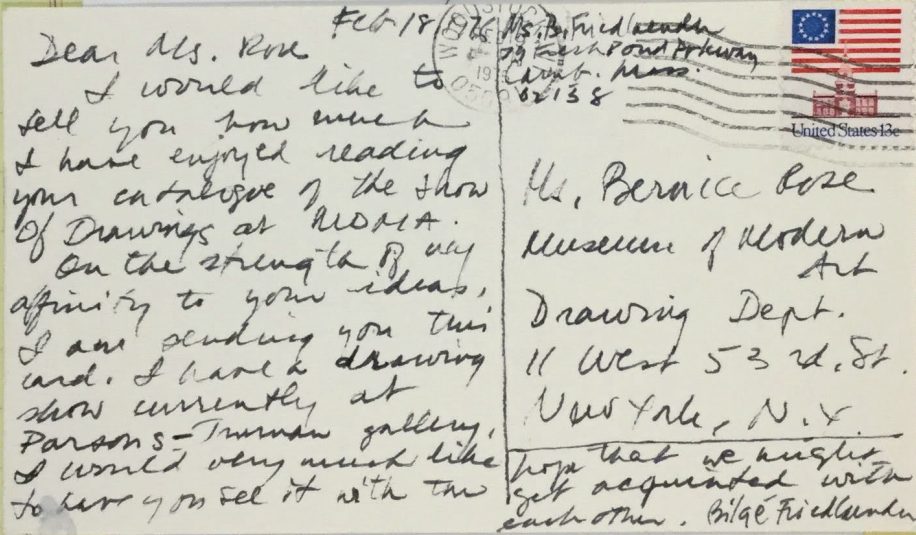 Feb 18 1976
Dear Ms. Rose
I would like to
tell you how much
I have enjoyed reading
your catalogue of the show
Of Drawings at MOMA.
On the strength of my
affinity to your ideas,
I am sending you this
card. I have a drawing
show currently at
Parsons-Truman gallery,
I would very much like
to have you see it with the
hope that we might
get acquainted with
each other. Bilgé Friedlaender
Ms. B. Friedlaender
Fresh Pond Parkway
Camb. Mass.
02138
United States 13c
Ms. Bernice Rose
Museum of Modern
Art
Drawing Dept.
11 West 53rd. St.
New York, N.Y.